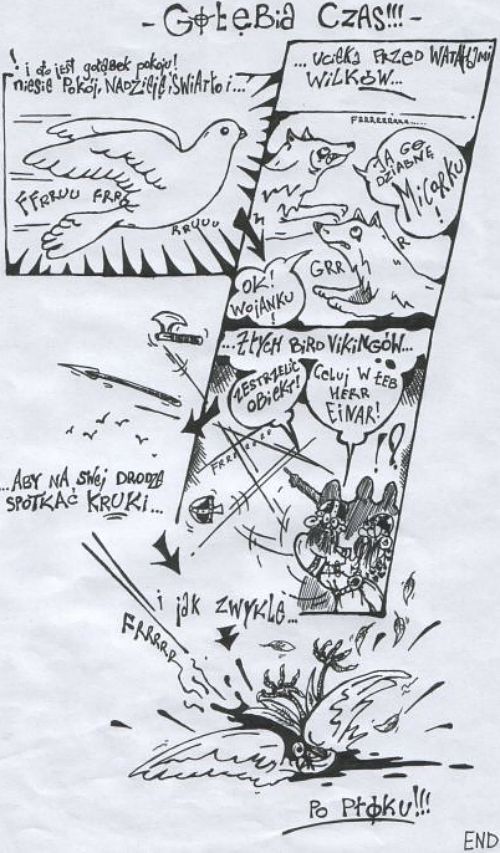 - GOŁĘBIA CZAS!!! -
! i oto jest gołąbek pokoju!
niesie POKÓJ, NADZIEJĘ i ŚWIATŁO i...
FFRRUU FRRR
RRUUU
... UCIEKA PRZED WATAHAMI
WILKÓW...
FRRRRRRRR......
JA GO
DZIABNĘ
MICORKU
!
GRR
R
OK!
WOJANKU
!
...ZŁYCH BIRD VIKINGÓW...
ZESTRZELIĆ
OBIEKT!
CELUJ W ŁEB
HERR
EINAR!
FRRRRRRR
!?
...ABY NA SWEJ DRODZE
SPOTKAĆ KRUKI...
i jak ZWYKLE...
FRRRRR
PO PTOKU!!!
END